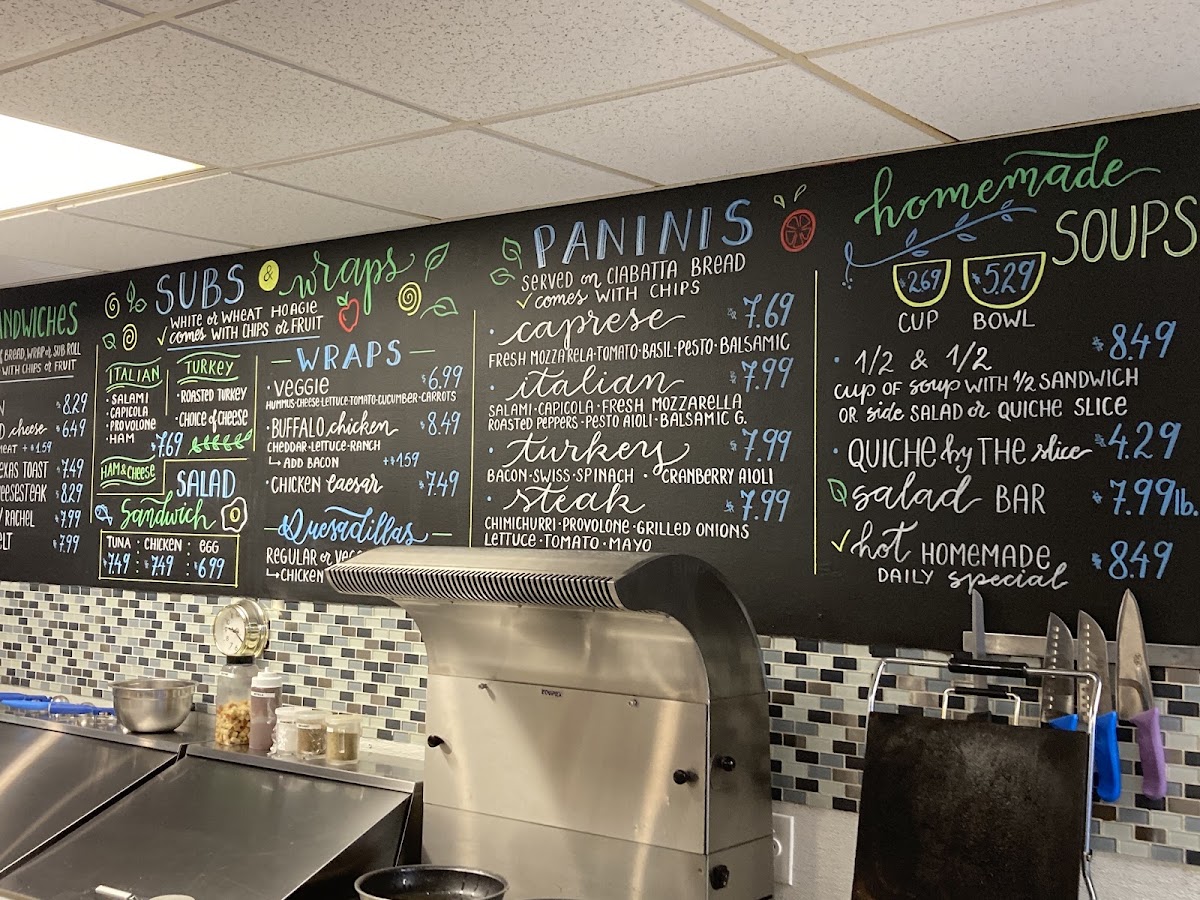 SUBS & wraps
WHITE or WHEAT HOAGIE
✓ comes WITH CHIPS or FRUIT
BREAD, WRAP or SUB ROLL
WITH CHIPS or FRUIT
$8.29
cheese $6.49
+$1.59
TEXAS TOAST $7.49
$8.29
RACHEL $7.99
$7.99
ITALIAN
· SALAMI
· CAPICOLA
· PROVOLONE
· HAM
$7.69
HAM & CHEESE
TURKEY
· ROASTED TURKEY
· CHOICE of CHEESE
SALAD
Sandwich
TUNA : CHICKEN : EGG
$7.49 : $7.49 : $6.99
WRAPS
· VEGGIE $6.99
HUMMUS·CHEESE·LETTUCE·TOMATO·CUCUMBER·CARROTS
· BUFFALO chicken $8.49
CHEDDAR·LETTUCE·RANCH
↳ ADD BACON +$1.59
· CHICKEN caesar $7.49
Quesadillas
REGULAR or
↳ CHICKEN
PANINIS
SERVED on CIABATTA BREAD
✓ comes WITH CHIPS
· caprese $7.69
FRESH MOZZARELA·TOMATO·BASIL·PESTO·BALSAMIC
· italian $7.99
SALAMI·CAPICOLA·FRESH MOZZARELLA
ROASTED PEPPERS·PESTO AIOLI·BALSAMIC G.
· turkey $7.99
BACON·SWISS·SPINACH · CRANBERRY AIOLI
· steak $7.99
CHIMICHURRI·PROVOLONE·GRILLED ONIONS
LETTUCE·TOMATO·MAYO
homemade
SOUPS
$2.69 $5.29
CUP BOWL
· 1/2 & 1/2 $8.49
cup of soup WITH 1/2 SANDWICH
OR side SALAD or QUICHE SLICE
· QUICHE by THE slice $4.29
salad BAR $7.99 lb.
✓ hot HOMEMADE $8.49
DAILY special